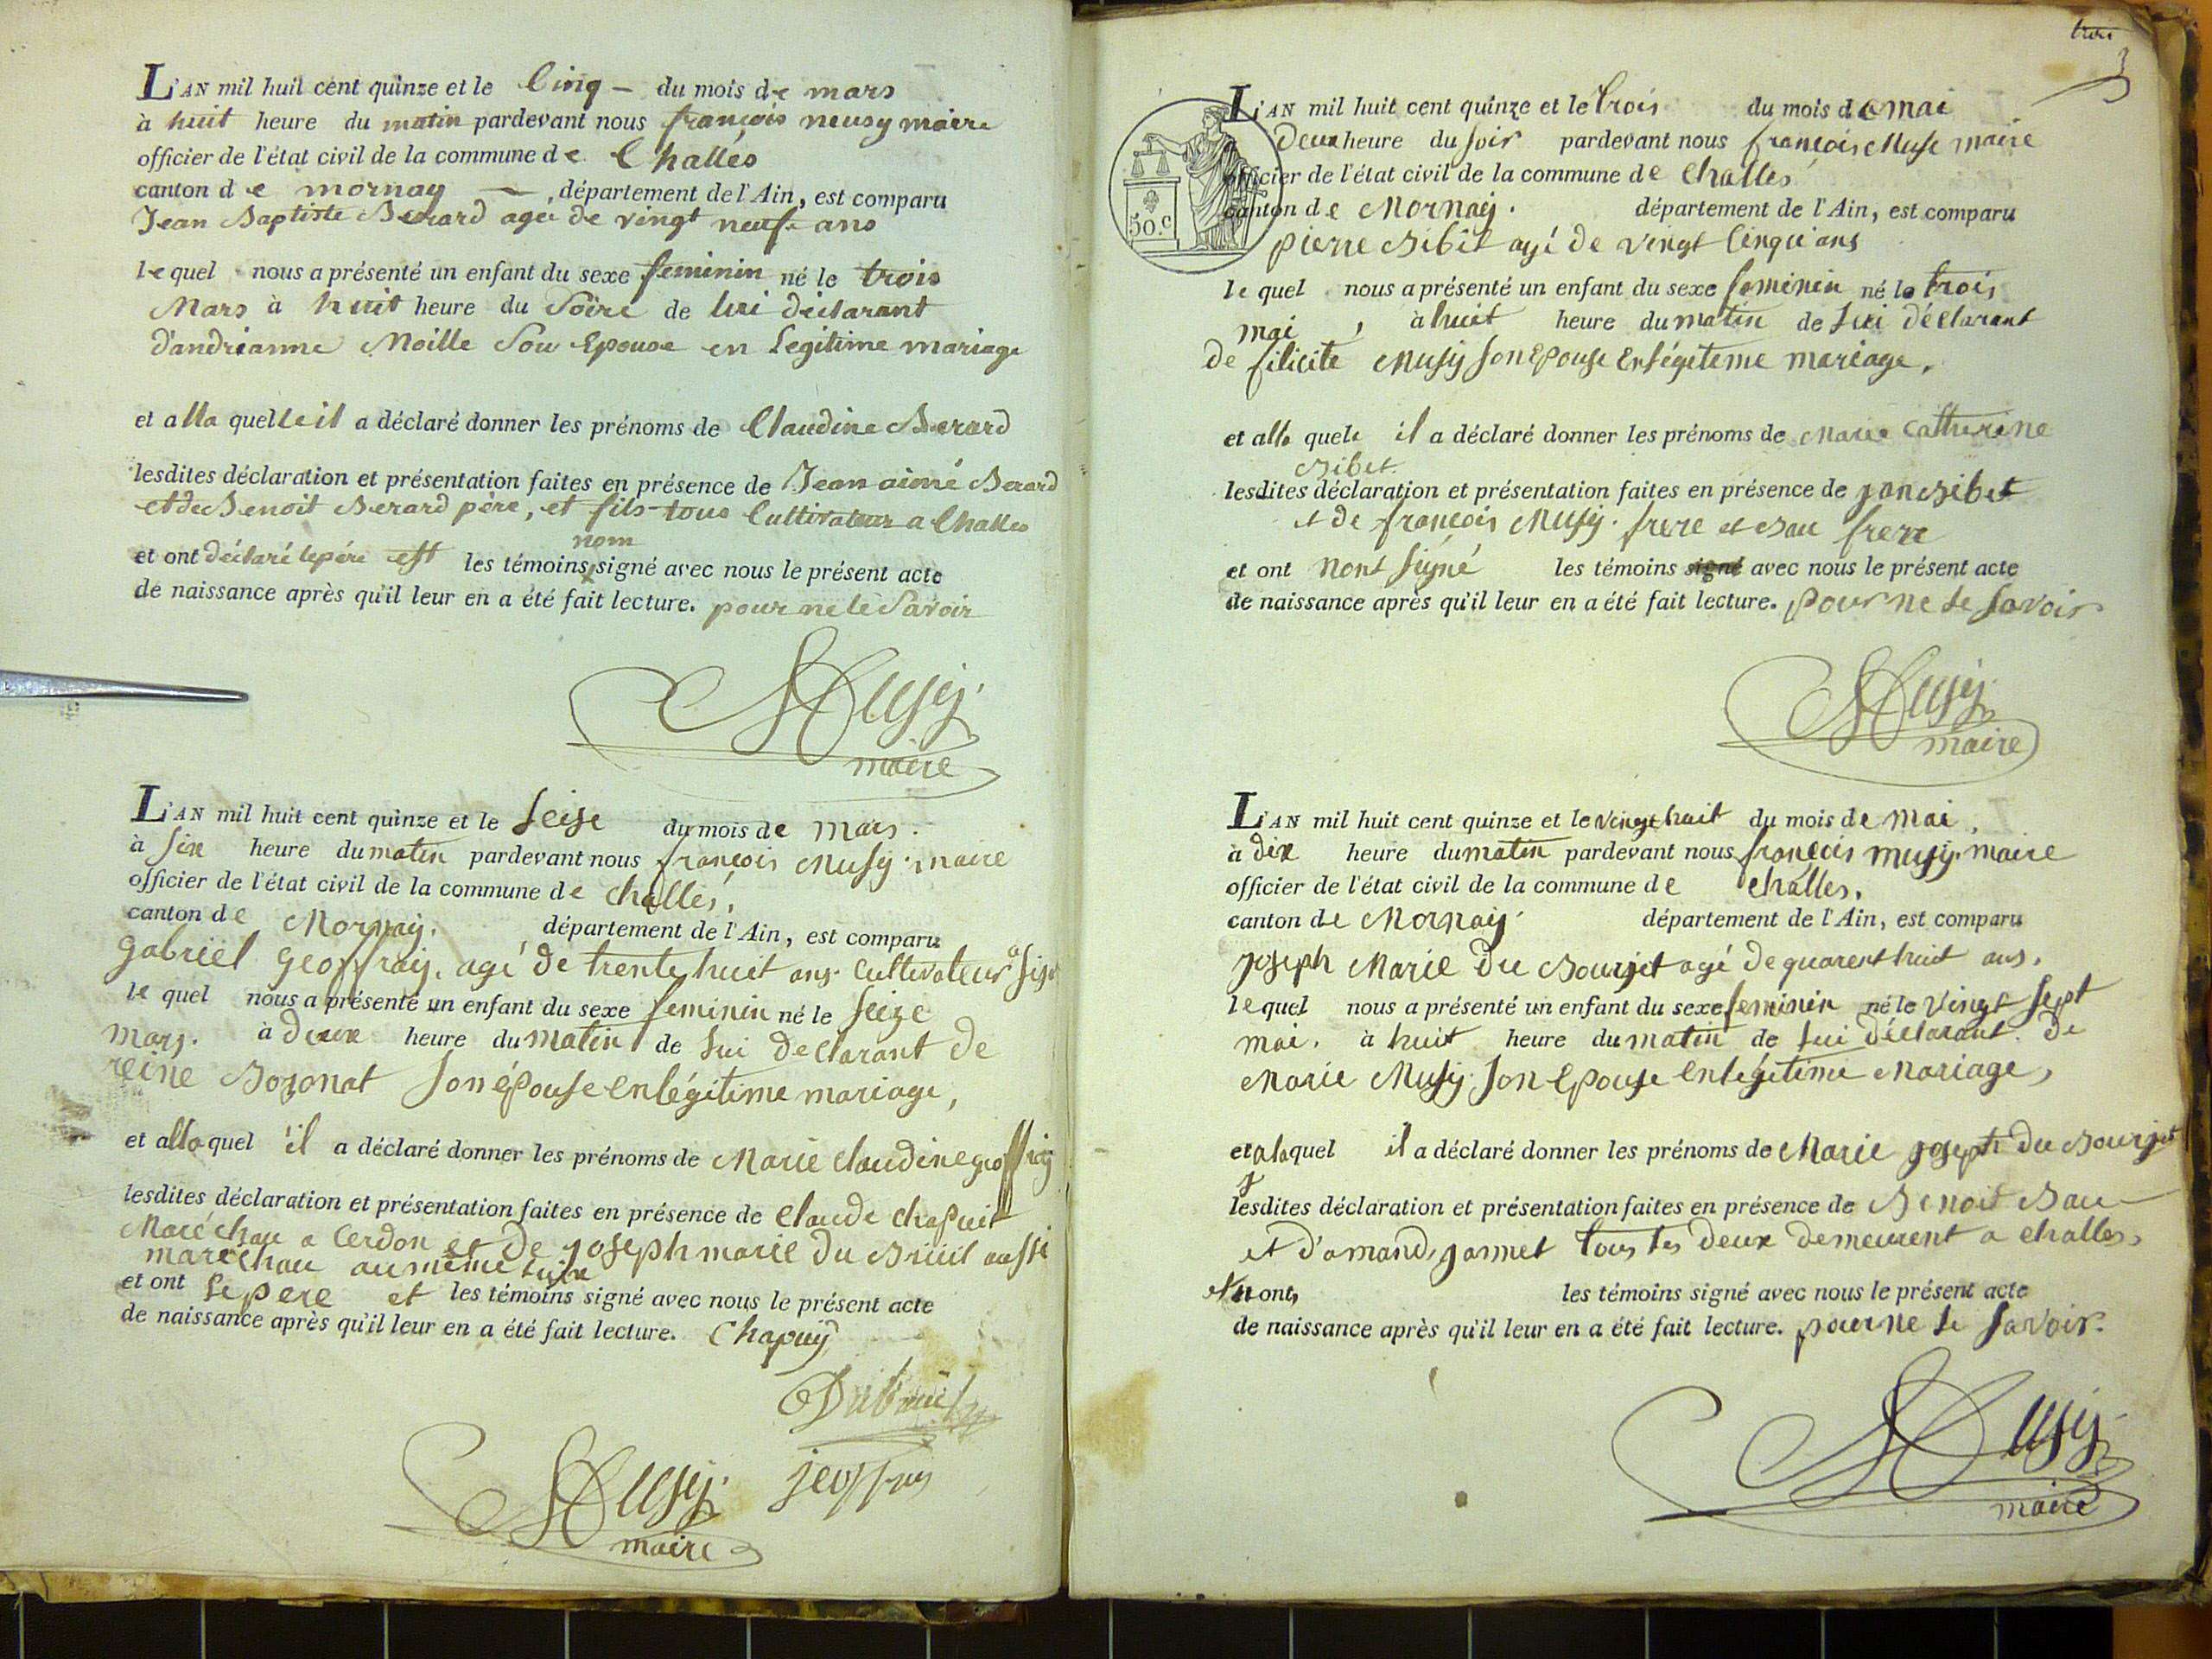 L'AN mil huit cent quinze et le Cinq – du mois de mars
à huit heure du matin pardevant nous françois neusy maire
officier de l'état civil de la commune de Challes
canton de mornay — , département de l'Ain, est comparu
Jean Baptiste Berard agée de vingt neuf ans
le quel nous a présenté un enfant du sexe feminin né le trois
Mars à huit heure du Soire de lui déclarant
d'andrianne Moille Son Epouse en Legitime mariage
et alla quelle il a déclaré donner les prénoms de Claudine Berard
lesdites déclaration et présentation faites en présence de Jean aimé Berard
et de Benoit Berard père, et fils tous Cultivateur a Challes
nom
et ont déclaré le père est les témoins signé avec nous le présent acte
de naissance après qu'il leur en a été fait lecture. pour ne le Savoir
Musy
maire
L'AN mil huit cent quinze et le Seise du mois de mars.
à Six heure du matin pardevant nous françois Musy. maire
officier de l'état civil de la commune de challes,
canton de Mornay. département de l'Ain, est comparu
gabriel geoffray, agé de trente huit ans. Cultivateur a
le quel nous a présenté un enfant du sexe feminin né le Seize
mars. à deux heure du matin de Lui declarant de
reine Bozonat Son épouse en légitime mariage,
et alla quel il a déclaré donner les prénoms de Marie Claudine geoffray
lesdites déclaration et présentation faites en présence de Claude chapuit
Maréchau a Cerdon et de joseph marie du Bruit aussi
marechau au même
et ont Le pere et les témoins signé avec nous le présent acte
de naissance après qu'il leur en a été fait lecture. Chapuy
Musy jeoffray
maire
trois
3
L'AN mil huit cent quinze et le trois du mois de mai
deux heure du soir pardevant nous françois Muse maire
officier de l'état civil de la commune de Challes
canton de Mornay. département de l'Ain, est comparu
50.c
pierre Bibet agé de vingt Cinque ans
le quel nous a présenté un enfant du sexe feminin né le trois
mai, à huit heure du matin de Lui déclarant
de filicité Musy Son Epouse En Légiteme mariage,
et alla quele il a déclaré donner les prénoms de Marie Catherine
Bibet.
lesdites déclaration et présentation faites en présence de jan Bibet
et de françois Musy. frere et Bau frere
et ont nont signé les témoins signé avec nous le présent acte
de naissance après qu'il leur en a été fait lecture. pour ne Le Savoir
Musy
maire
L'AN mil huit cent quinze et le vingt huit du mois de mai,
à dix heure du matin pardevant nous françois musy. maire
officier de l'état civil de la commune de challes,
canton de Mornay. département de l'Ain, est comparu
joseph Marie du Bourget agé de quarent huit ans,
le quel nous a présenté un enfant du sexe feminin né le vingt Sept
mai, à huit heure du matin de Lui déclarant. de
Marie Musy. Son Epouse en légitime Mariage,
et ala quel il a déclaré donner les prénoms de Marie joseph du Bourjet
lesdites déclaration et présentation faites en présence de Benoit Bau
et d'amand, jannet tous Les deux demeurent a challes,
ont, les témoins signé avec nous le présent acte
de naissance après qu'il leur en a été fait lecture. pour ne Le Savoir.
Musy
maire